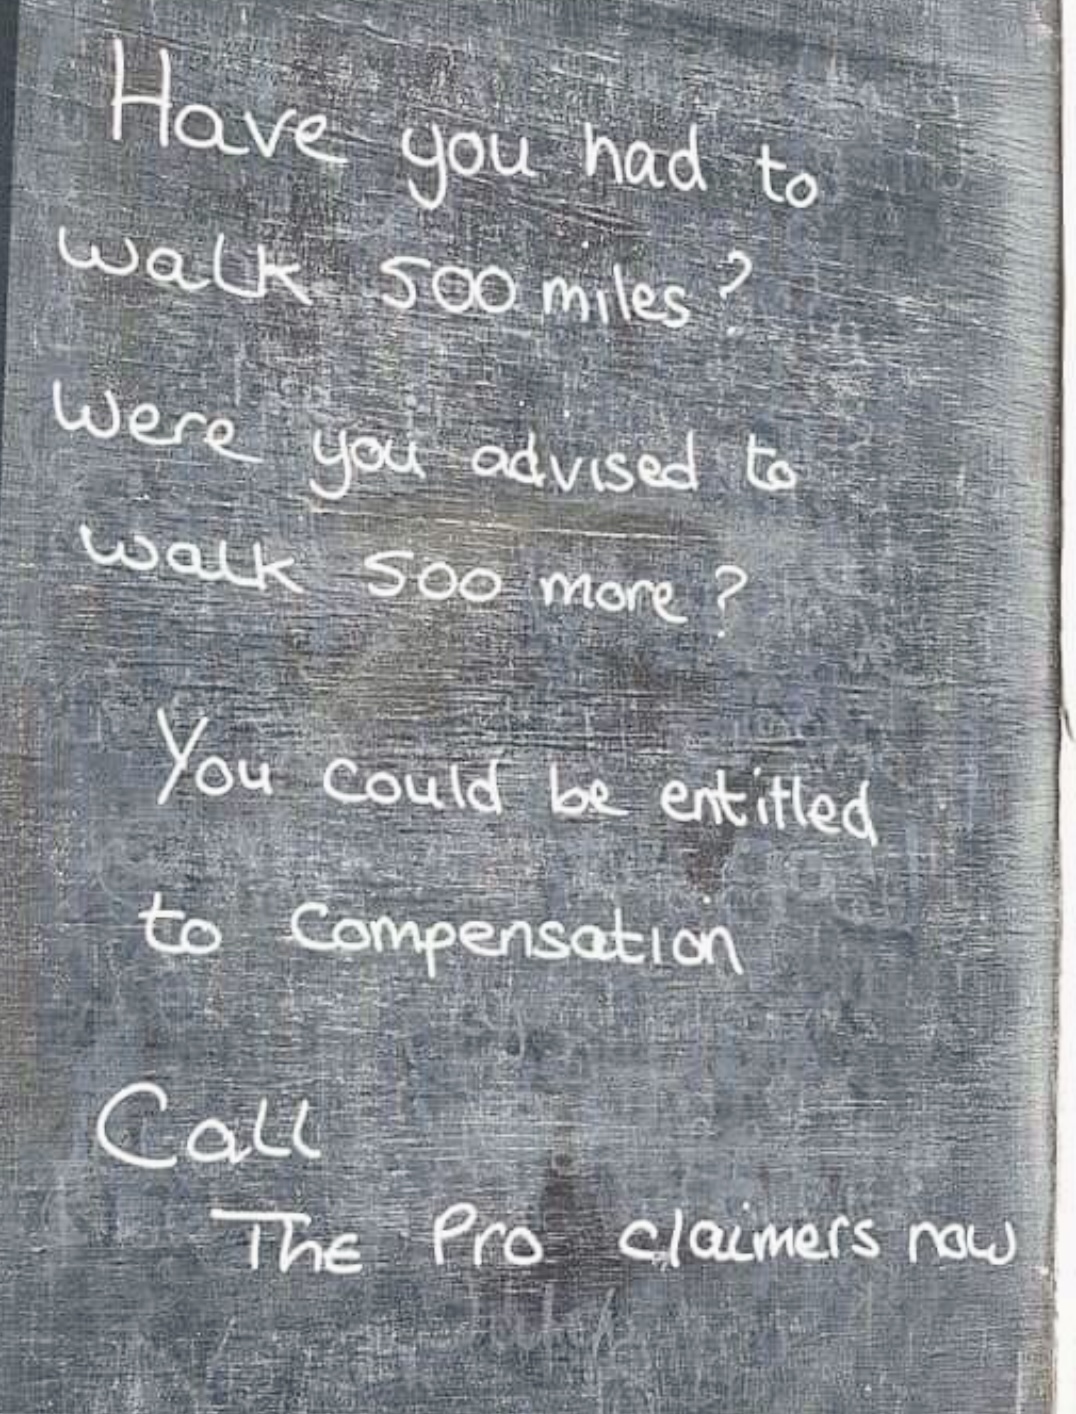 Have you had to
walk 500 miles?
were you advised to
walk 500 more?
You could be entitled
to Compensation
Call
The Pro claimers now